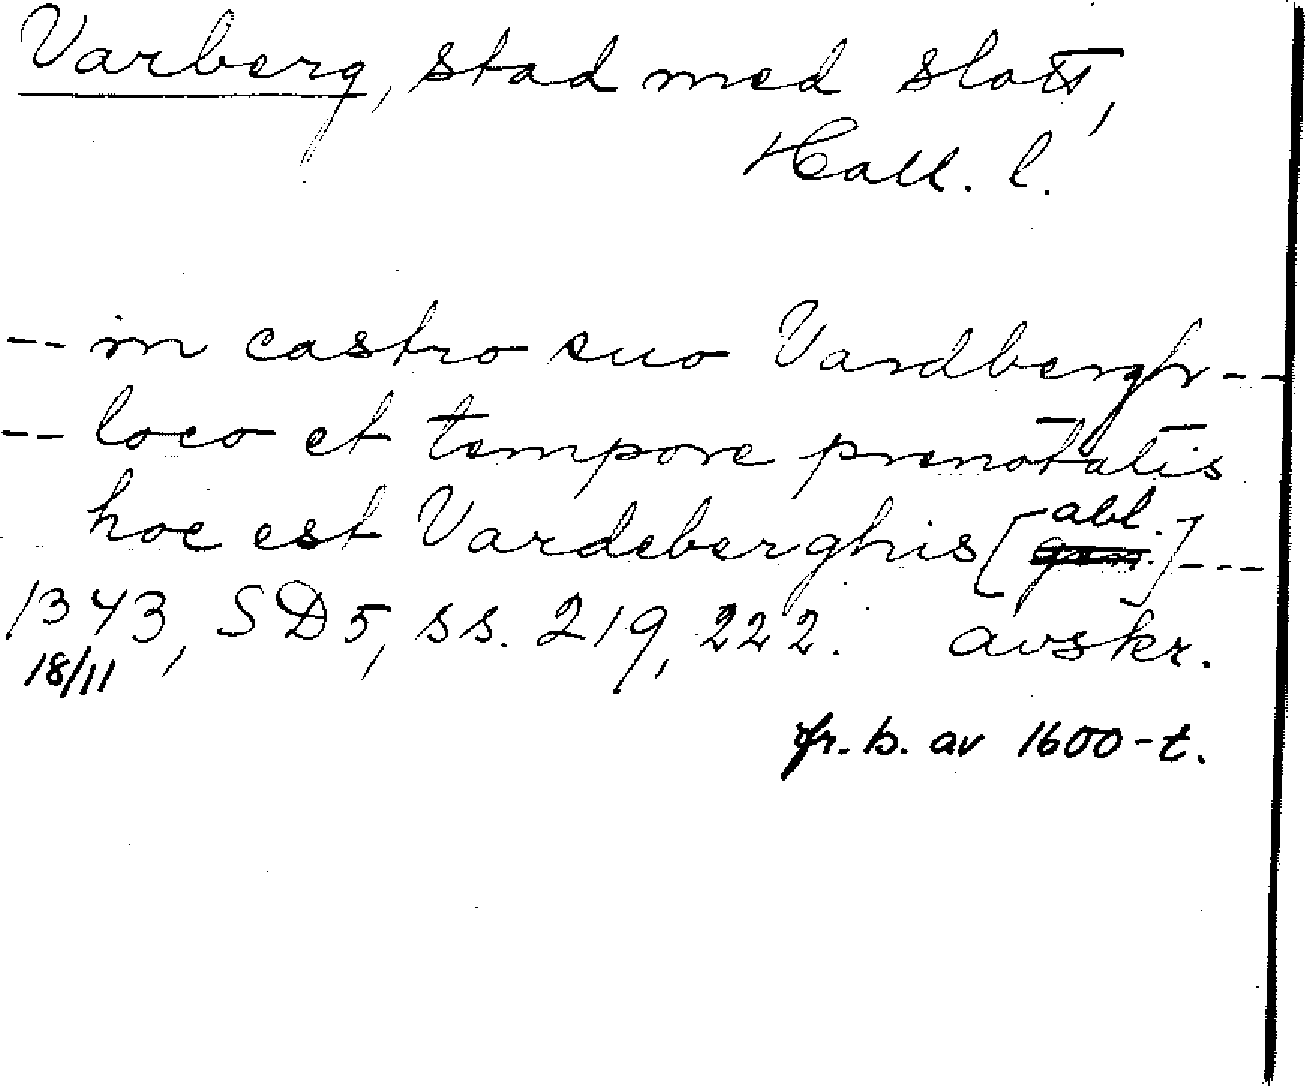 Varberg, stad med slott,
Hall. l.
-- in castro suo Vardbergh --
-- loco et tempore prenotatis
hoc est Vardeberghis [abl.] ---
1343, SD5, ss. 219, 222. avskr.
18/11
fr. b. av 1600-t.